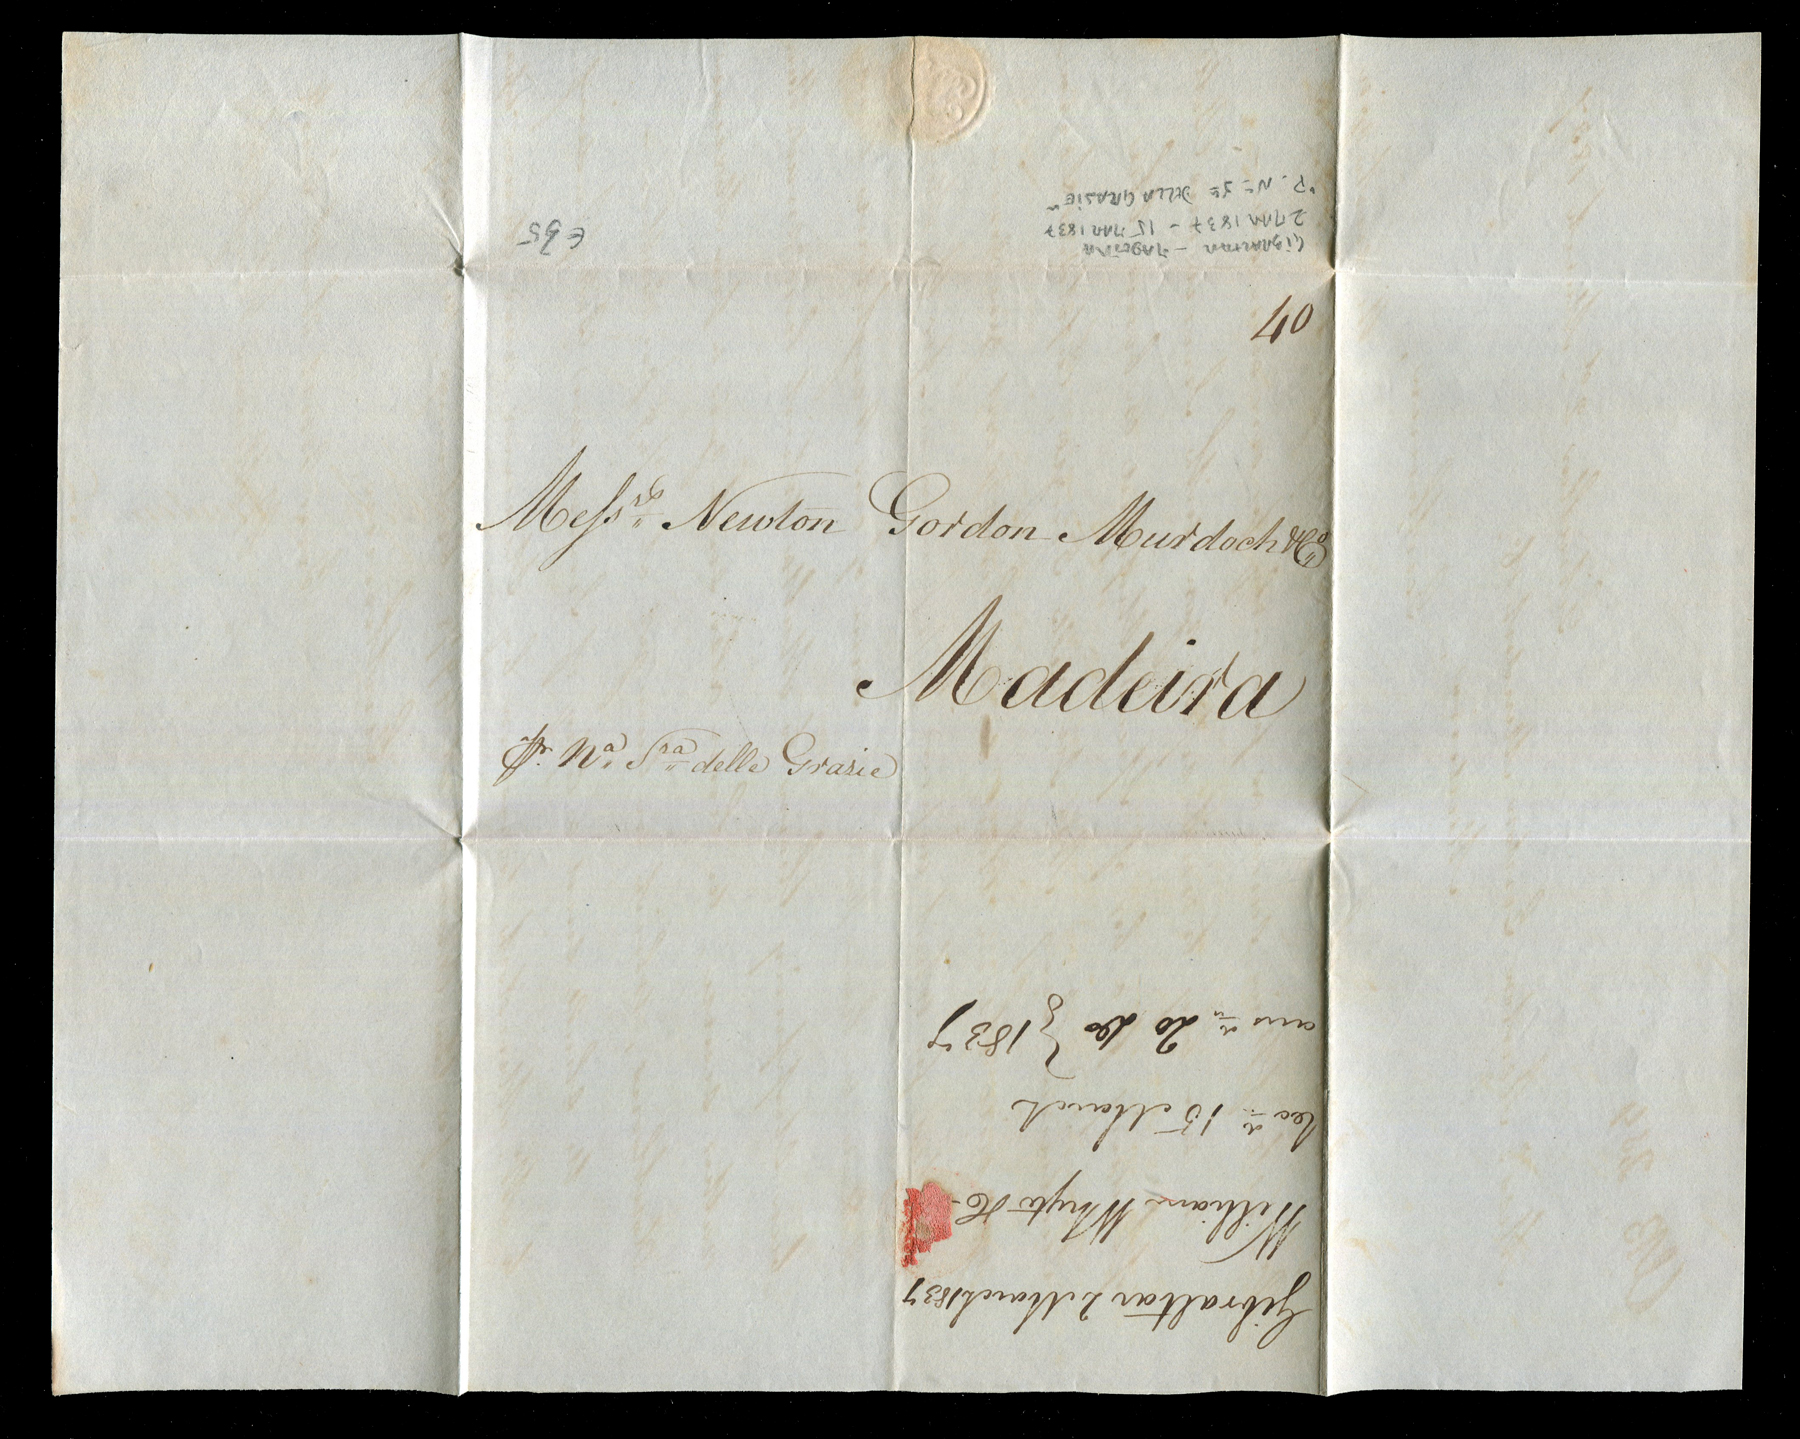 "P. Nª Sª DELLA GRASIE"
2 MAR 1837 - 15 MAR 1837
GIBRALTAR - MADEIRA
€35
40
Messrs Newton Gordon Murdoch & Co
Madeira
pr. Na Sra delle Grasie
Gibraltar 2 March 1837
William Whyte & Co
recd 15 March
ansd 20 do } 1837